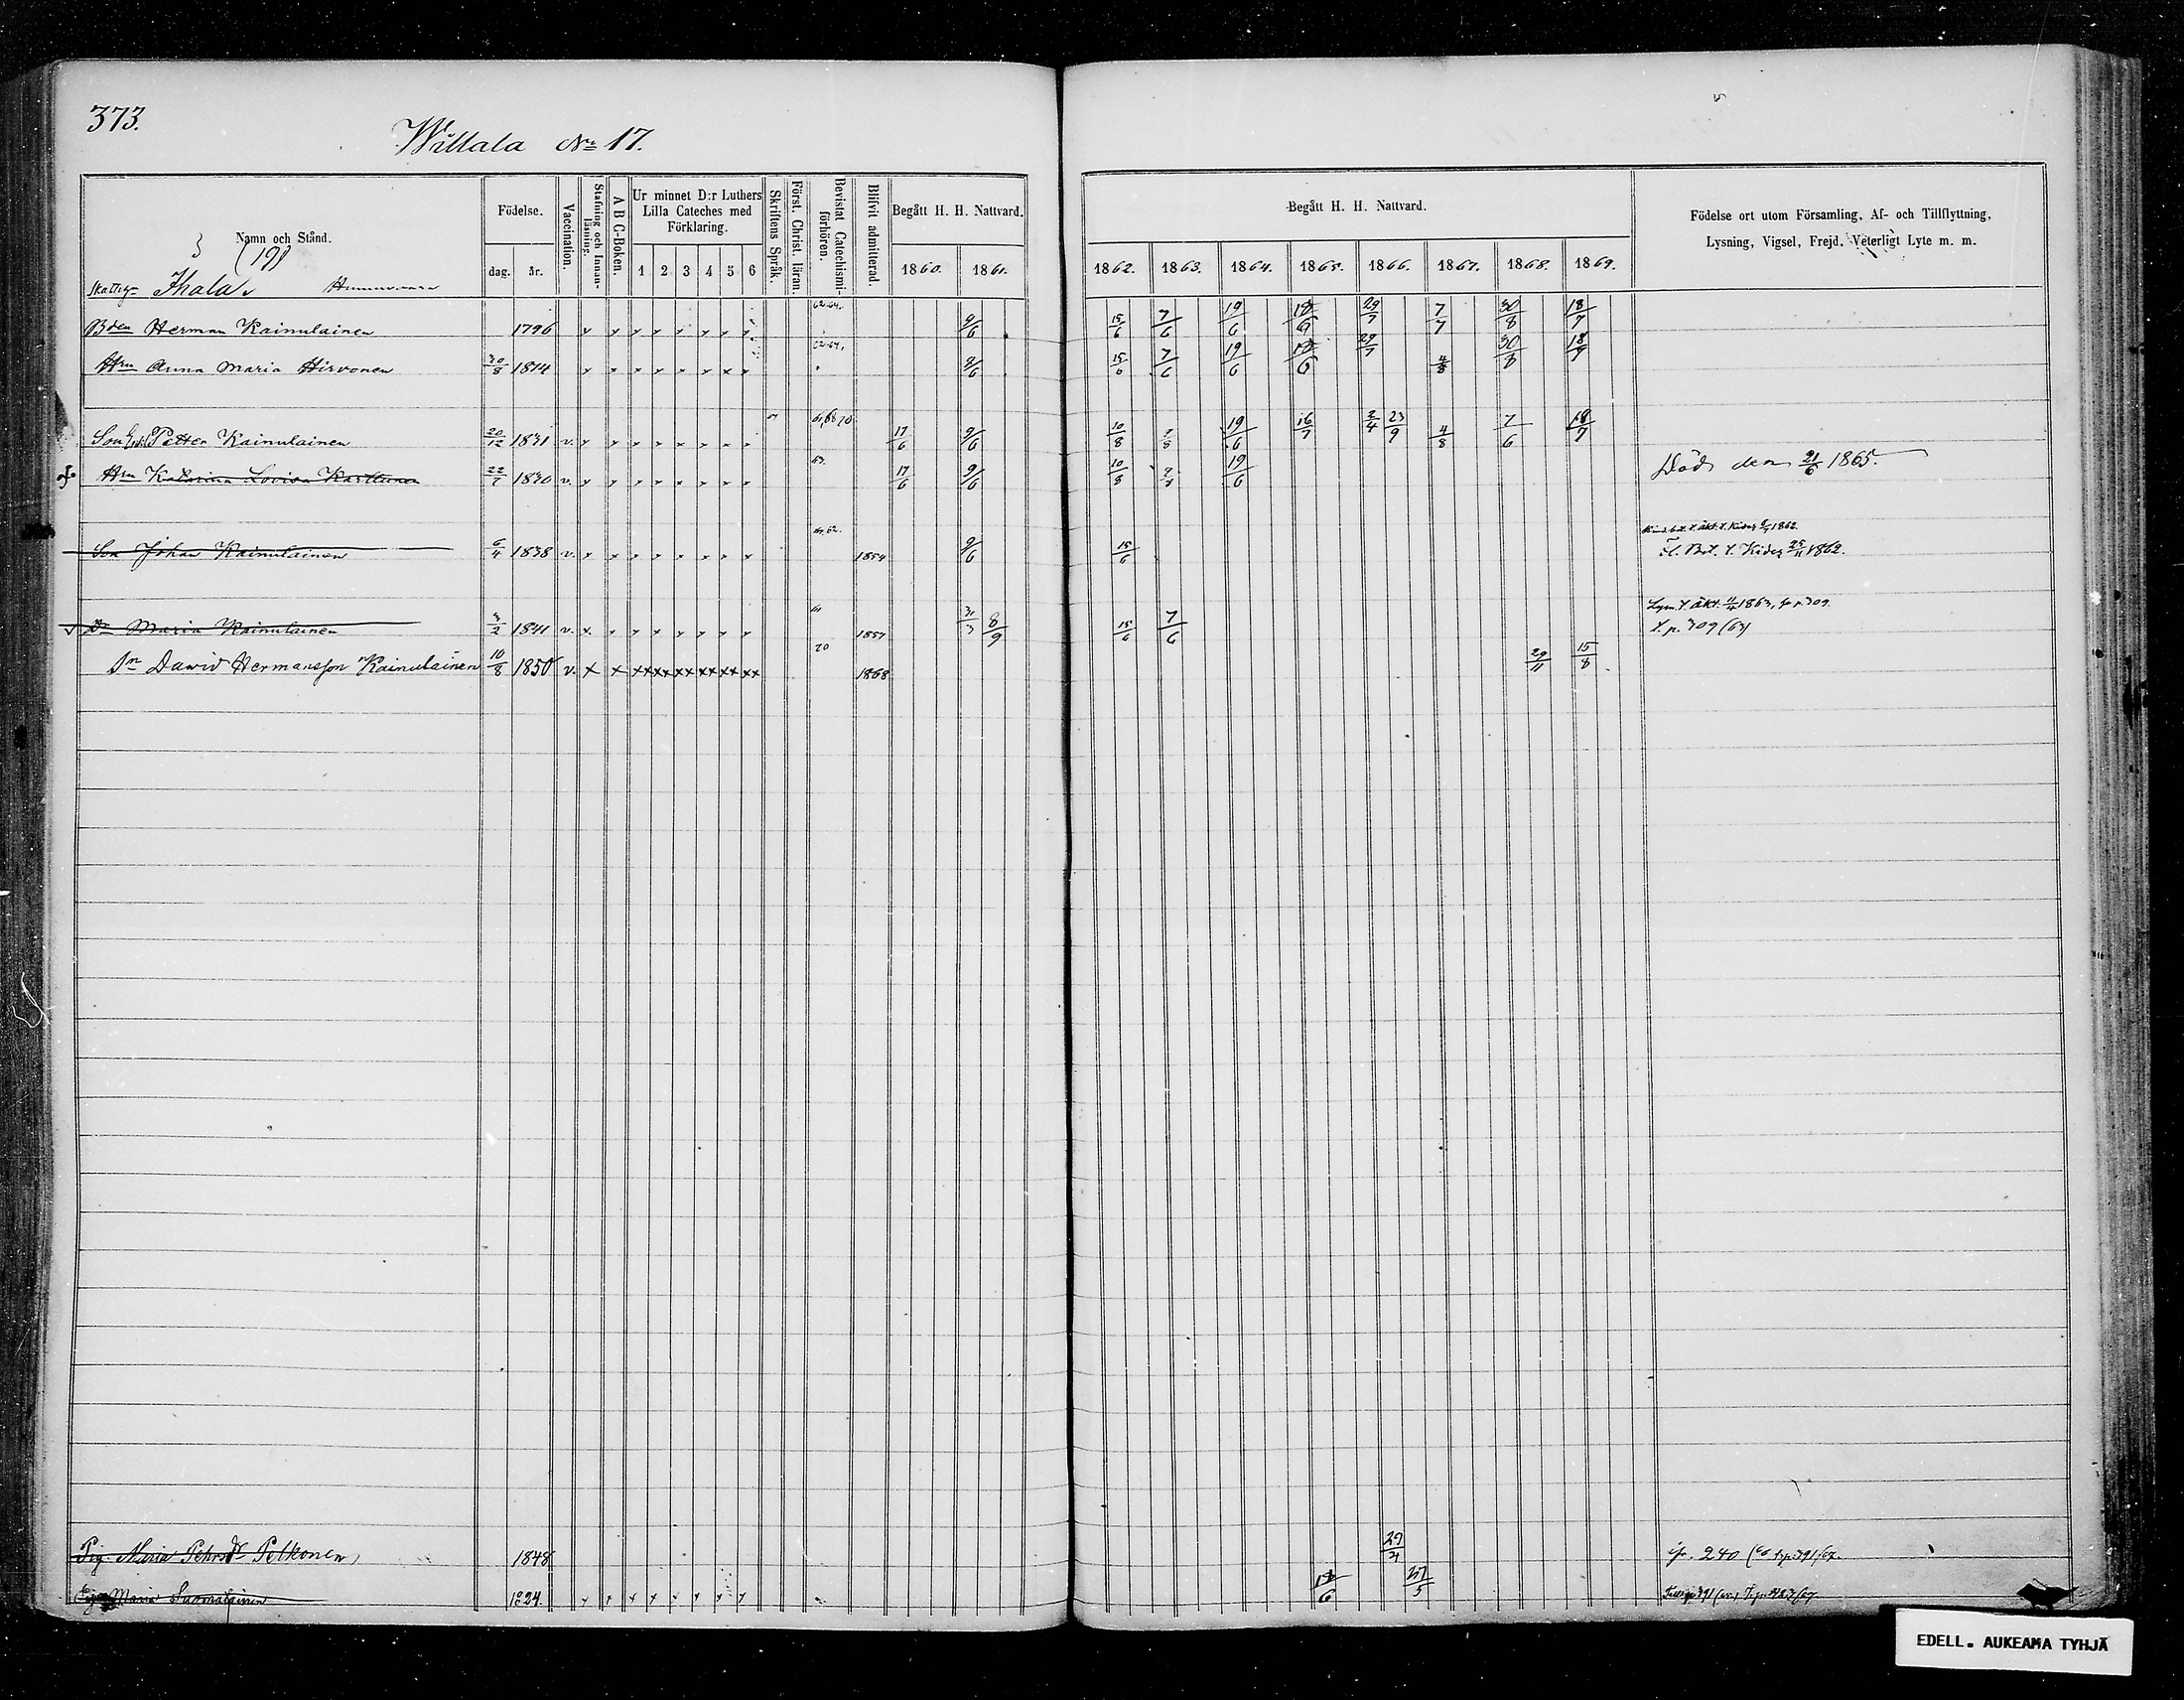 373.
Wiltala No 17.
Namn och Stånd.
Födelse.
dag. år.
Vaccination.
Stafning och Innanläsning.
A B C-Boken.
Ur minnet D:r Luthers Lilla Cateches med Förklaring.
1 2 3 4 5 6
Skriftens Språk.
Först. Christ. läran.
Bevistat Catechismiförhören.
Blifvit admitterad.
Begått H. H. Nattvard.
1860. 1861.
Begått H. H. Nattvard.
1862. 1863. 1864. 1865. 1866. 1867. 1868. 1869.
Födelse ort utom Församling, Af- och Tillflyttning,
Lysning, Vigsel, Frejd, Veterligt Lyte m. m.
(191
Ihala
Bden Herman Kainulainen 1796 x x x x x x x x 62.64. 9/6 15/6 7/6 19/6 18/6 29/7 7/7 30/8 18/7
Hru Anna Maria Hirvonen 30/8 1814 x x x x x x x x 62.64. 9/6 15/6 7/6 19/6 18/6 29/7 4/8 30/8 18/7
Son Petter Kainulainen 20/12 1831 v. x x x x x x x x 17/6 9/6 10/8 2/8 19/6 16/7 2/4 23/9 4/8 7/6 18/7
Hru Katarina Lovisa Karttunen 22/7 1830 v. x x x x x x x x 63. 17/6 9/6 10/8 2/8 19/6 Död den 21/6 1865.
Son Johan Kainulainen 6/4 1838 v. x x x x x x x x 62. 1854 9/6 15/6 1862.
Bet. t. Kides 25/11 1862.
Dr Maria Kainulainen 3/2 1841 v. x x x x x x x x 61 1857 31/3 8/9 15/6 7/6 Lysn. t. äkt. 1863, p. 309
t. p. 309 (63)
Sn Dawid Hermansson Kainulainen 10/8 1850 v. x x xx xx xx xx xx xx 70 1868 29/11 15/8
Pig. Maria Pehrsdr Pelkonen 1848 29/4 p. 240
Maria Suomalainen 1824 x x x x x x x x 18/6 27/5
EDELL. AUKEAMA TYHJÄ